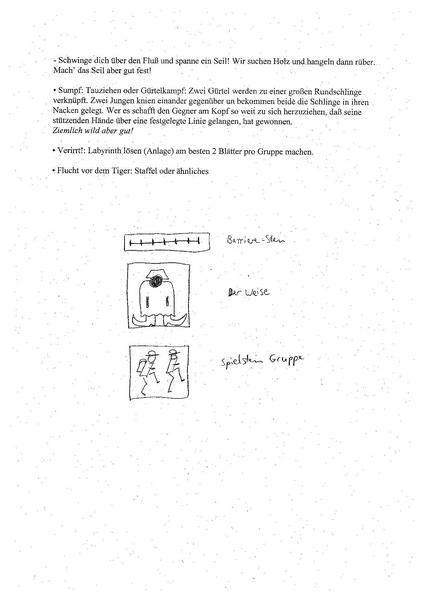 - Schwinge dich über den Fluß und spanne ein Seil! Wir suchen Holz und hangeln dann rüber.
Mach' das Seil aber gut fest!
• Sumpf: Tauziehen oder Gürtelkampf: Zwei Gürtel werden zu einer großen Rundschlinge
verknüpft. Zwei Jungen knien einander gegenüber un bekommen beide die Schlinge in ihren
Nacken gelegt. Wer es schafft den Gegner am Kopf so weit zu sich herzuziehen, daß seine
stützenden Hände über eine festgelegte Linie gelangen, hat gewonnen.
Ziemlich wild aber gut!
• Verirrt!: Labyrinth lösen (Anlage) am besten 2 Blätter pro Gruppe machen.
• Flucht vor dem Tiger: Staffel oder ähnliches
Barriere-Stein
Der Weise
Spielstein Gruppe